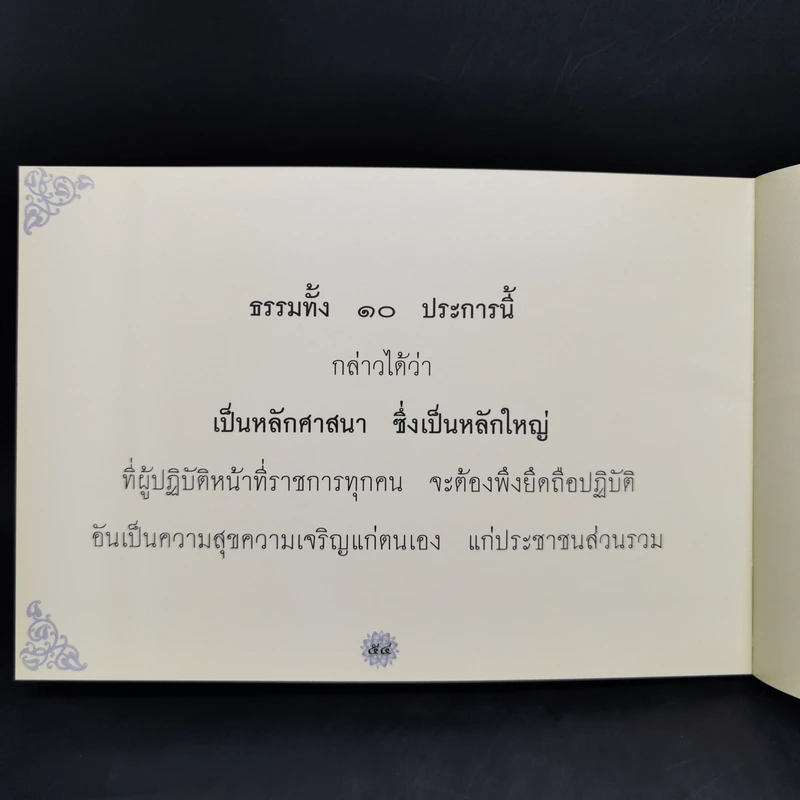 ธรรมทั้ง ๑๐ ประการนี้
กล่าวได้ว่า
เป็นหลักศาสนา ซึ่งเป็นหลักใหญ่
ที่ผู้ปฏิบัติหน้าที่ราชการทุกคน จะต้องพึงยึดถือปฏิบัติ
อันเป็นความสุขความเจริญแก่ตนเอง แก่ประชาชนส่วนรวม
๕๔